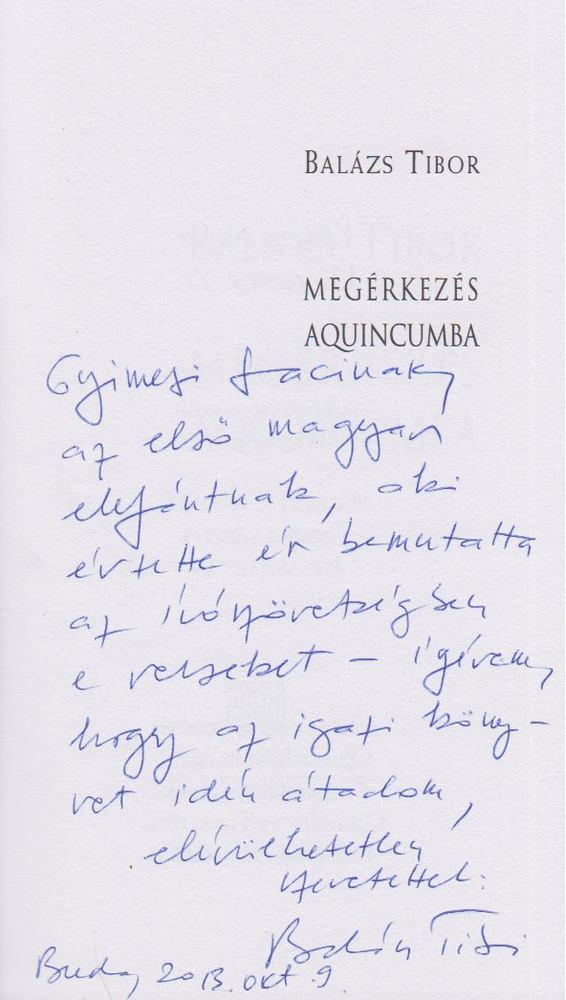 BALÁZS TIBOR
MEGÉRKEZÉS
AQUINCUMBA
Gyimesi Lacinak,
az első magyar
elefántnak, aki
értette és bemutatta
az Írószövetségben
e verseket – ígérem,
hogy az igazi köny-
vet idén átadom,
elévülhetetlen
szeretettel:
Balázs Tibi
Buda, 2013. okt. 9.